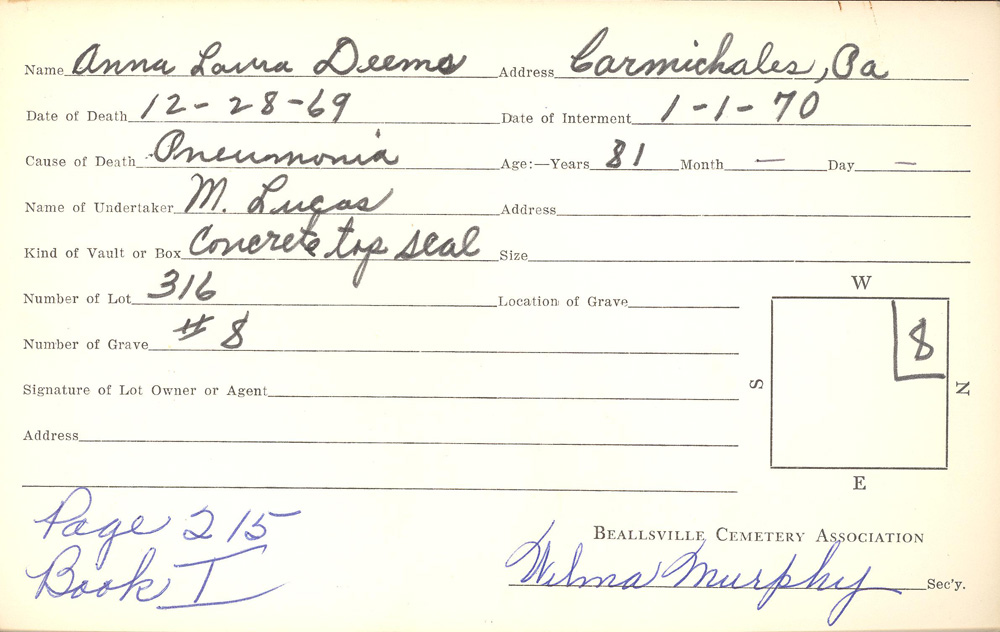 Name Anna Laura Deems Address Carmichales, Pa
Date of Death 12-28-69 Date of Interment 1-1-70
Cause of Death Pneumonia Age:—Years 81 Month — Day —
Name of Undertaker M. Lucas Address
Kind of Vault or Box Concrete top seal Size
Number of Lot 316 Location of Grave
Number of Grave # 8
Signature of Lot Owner or Agent
Address
W
8
S
N
E
Page 215
Book I
Beallsville Cemetery Association
Wilma Murphy Sec'y.